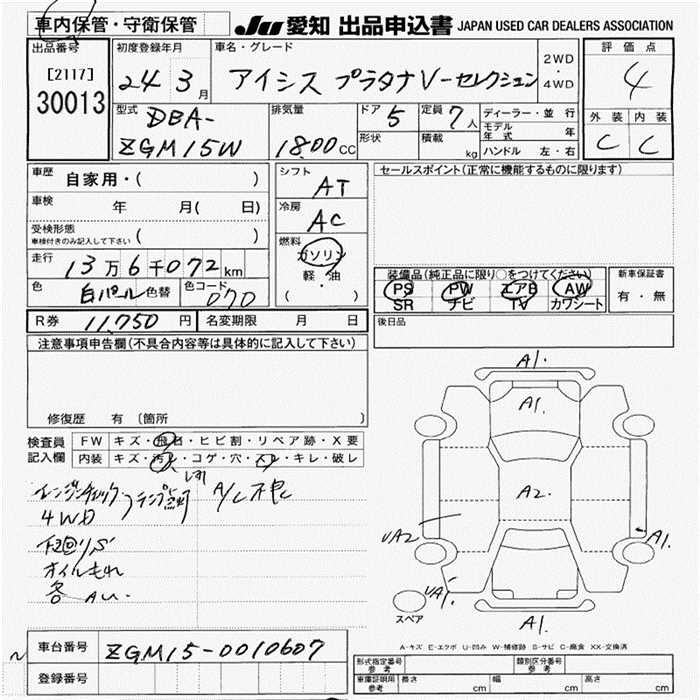 車内保管・守衛保管
JU 愛知 出品申込書 JAPAN USED CAR DEALERS ASSOCIATION
出品番号
[2117]
30013
初度登録年月
24 3月
車名・グレード
アイシス プラタナ V-セレクション
2WD
・
4WD
評価点
4
外装 内装
C C
型式
DBA-
ZGM15W
排気量
1800cc
ドア 5
形状
定員 7人
積載 kg
ディーラー・並行
モデル年式 年
ハンドル 左・右
車歴 自家用・( )
車検 年 月( 日)
受検形態
車検付きのみ記入して下さい ( )
走行 13万6千072km
色 白パール 色替
色コード 070
シフト
AT
冷房
AC
燃料
ガソリン
軽・油
( )
セールスポイント(正常に機能するものに限ります)
装備品(純正品に限り○をつけてください)
PS PW エアB AW
SR ナビ TV カワシート
新車保証書
有・無
R券 11,750円
名変期限 月 日
後日品
注意事項申告欄(不具合内容等は具体的に記入して下さい)
修復歴 有 〔箇所 〕
検査員
記入欄
FW キズ・飛石・ヒビ割・リペア跡・X要
内装 キズ・汚レ・コゲ・穴・スレ・キレ・破レ
エンジンチェックランプ点灯
A/C不良
4WD
下回りS
オイルもれ
各AU.
A1.
A1.
A2.
UA2
A1.
UA1.
A1.
スペア
A-キズ E-エクボ U-凹み W-補修跡 S-サビ C-腐食 XX-交換済
車台番号 ZGM15-0010607
登録番号
形式指定番号
参考
類別区分番号
参考
車庫証明用
参考
長さ cm
幅 cm
高さ cm